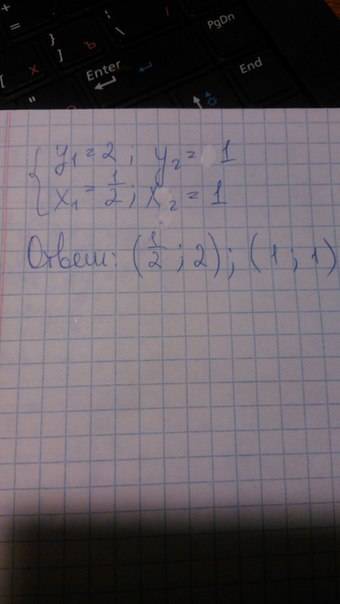 PgDn
Enter
End
{ y₁ = 2 ; y₂ = 1
x₁ = 1/2 ; x₂ = 1
Ответ: (1/2 ; 2) ; (1 ; 1)